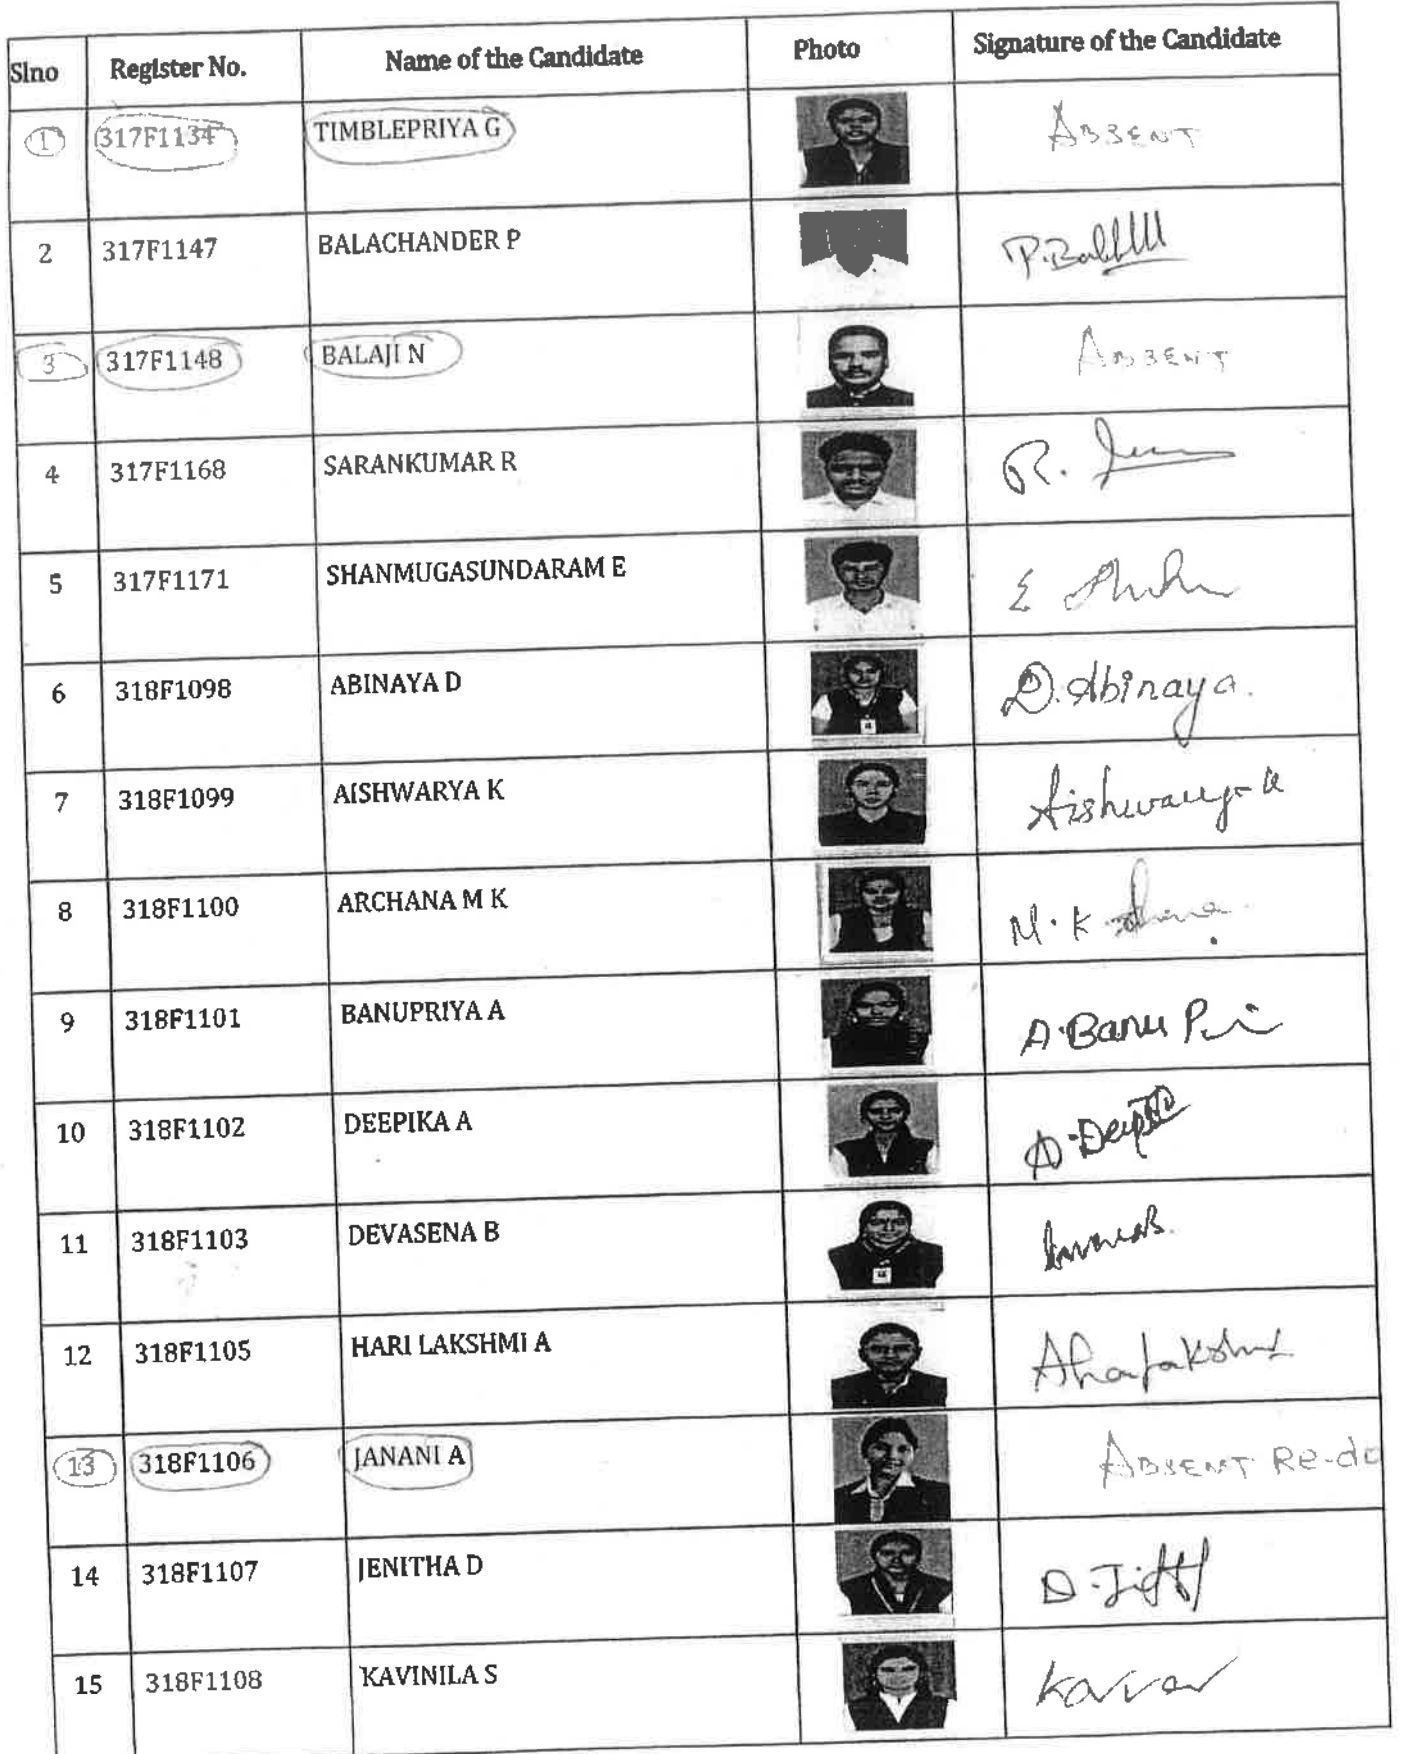 Slno Register No. Name of the Candidate Photo Signature of the Candidate
1 317F1134 TIMBLEPRIYA G ABSENT
2 317F1147 BALACHANDER P
3 317F1148 BALAJI N ABSENT
4 317F1168 SARANKUMAR R R.
5 317F1171 SHANMUGASUNDARAM E E
6 318F1098 ABINAYA D D. Abinaya.
7 318F1099 AISHWARYA K Aishwarya K
8 318F1100 ARCHANA M K M. K
9 318F1101 BANUPRIYA A A. Banu
10 318F1102 DEEPIKA A
11 318F1103 DEVASENA B
12 318F1105 HARI LAKSHMI A
13 318F1106 JANANI A ABSENT Re-do
14 318F1107 JENITHA D D.
15 318F1108 KAVINILA S